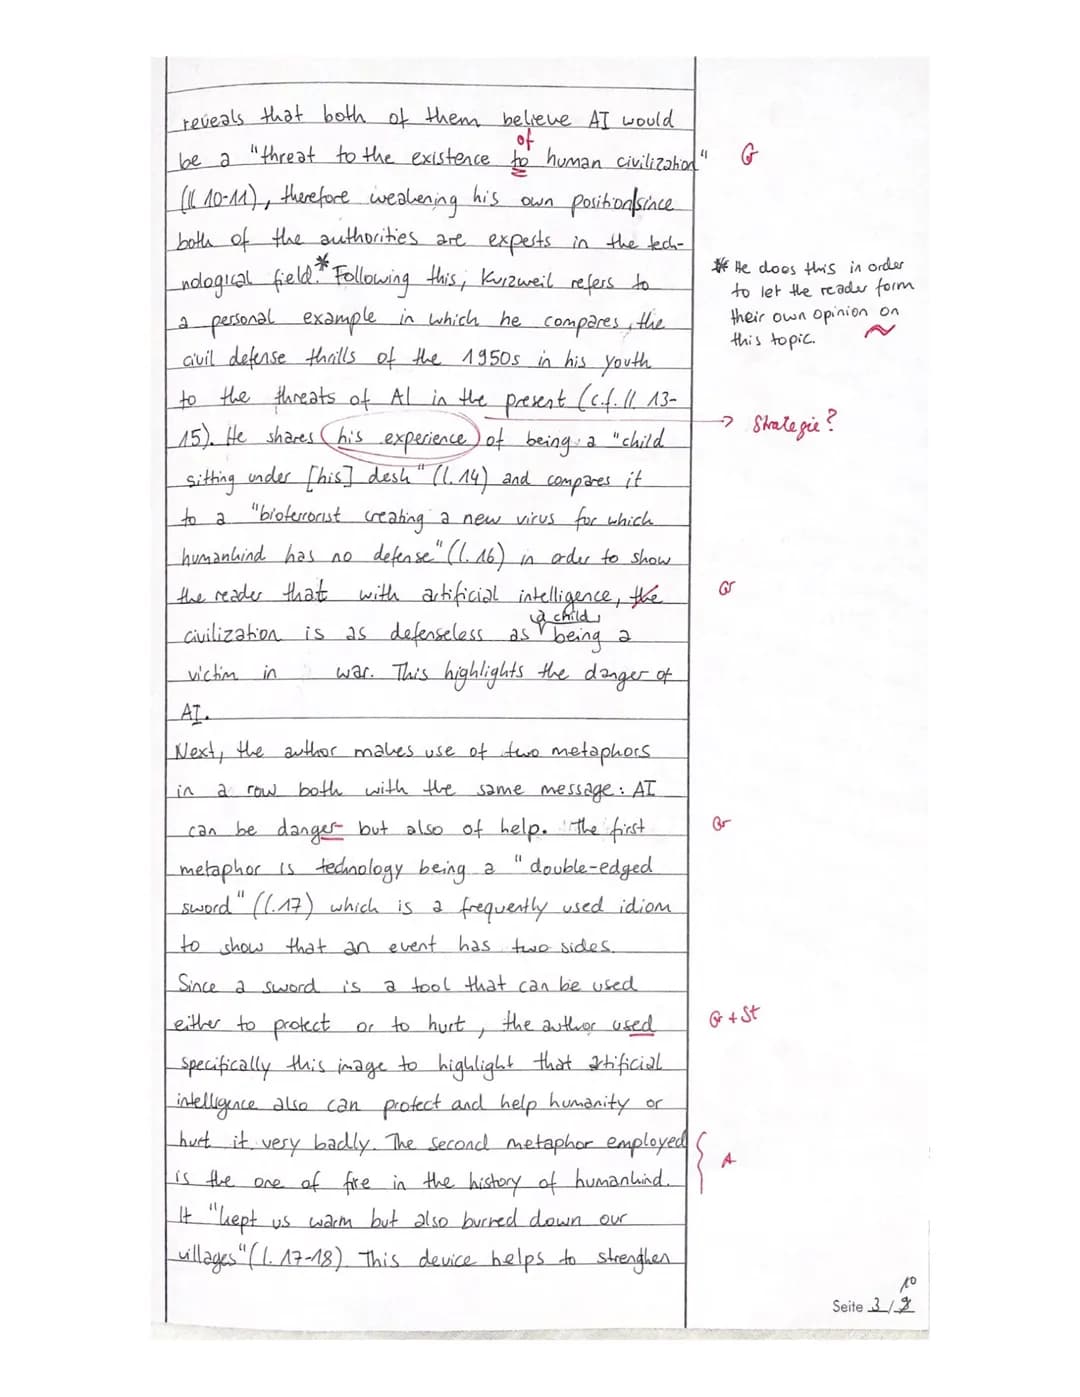 reveals that both of them believe AI would
of
be a "threat to the existence to human civilization" G
(ll. 10-11), therefore weakening his own position since
both of the authorities are experts in the tech-
nological field.* Following this, Kurzweil refers to
* He does this in order
to let the reader form
their own opinion on
this topic.
a personal example in which he compares, the
civil defense thrills of the 1950s in his youth
to the threats of AI in the present (c.f. ll. 13-
→ Strategie?
15). He shares his experience of being a "child
sitting under [his] desk" (l. 14) and compares it
to a "bioterrorist creating a new virus for which
humankind has no defense" (l. 16) in order to show
the reader that with artificial intelligence, the Gr
a child
civilization is as defenseless as being a
victim in war. This highlights the danger of
AI.
Next, the author makes use of two metaphors
in a row both with the same message: AI
can be danger but also of help. The first Gr
metaphor is technology being a "double-edged
sword" (l. 17) which is a frequently used idiom
to show that an event has two sides.
Since a sword is a tool that can be used
either to protect or to hurt, the author used Gr + St
specifically this image to highlight that artificial
intelligence also can protect and help humanity or
hurt it very badly. The second metaphor employed
A
is the one of fire in the history of humankind.
It "kept us warm but also burned down our
villages" (l. 17-18). This device helps to strenghen
10
Seite 3/9